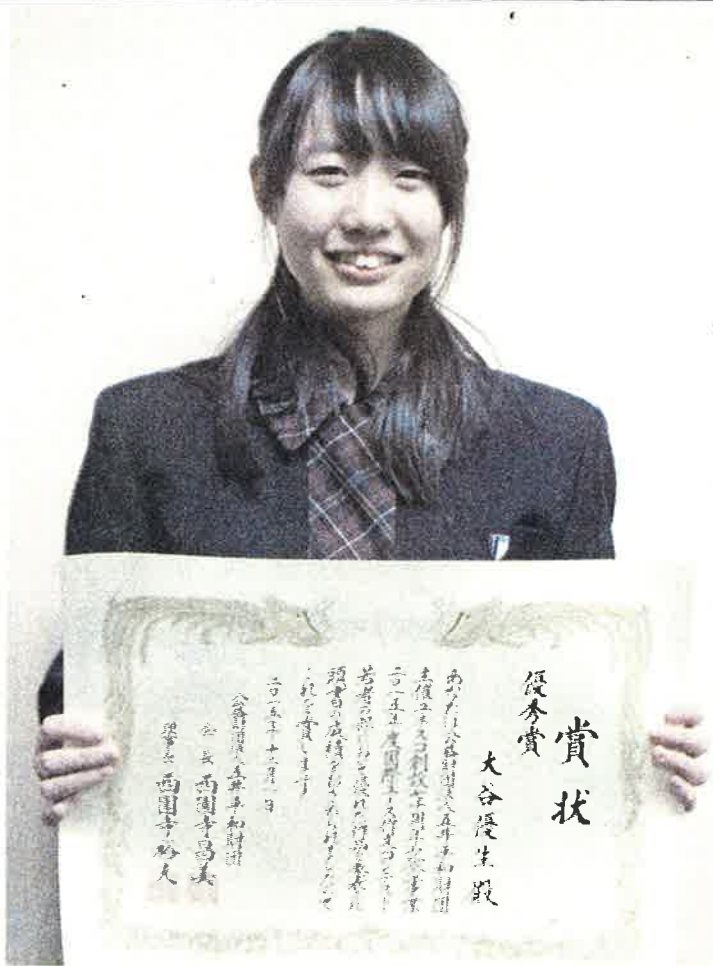 賞状
優秀賞
大谷優生殿
あなたは公益財団法人五井平和財団
主催ユネスコ
二〇一五年度国際ユース作文コンテスト
若者の部において優れた作品を
頭書の成績をおさめられました
これを賞します
二〇一五年十二月一日
公益財団法人五井平和財団
会長 西園寺昌美
理事長 西園寺裕夫